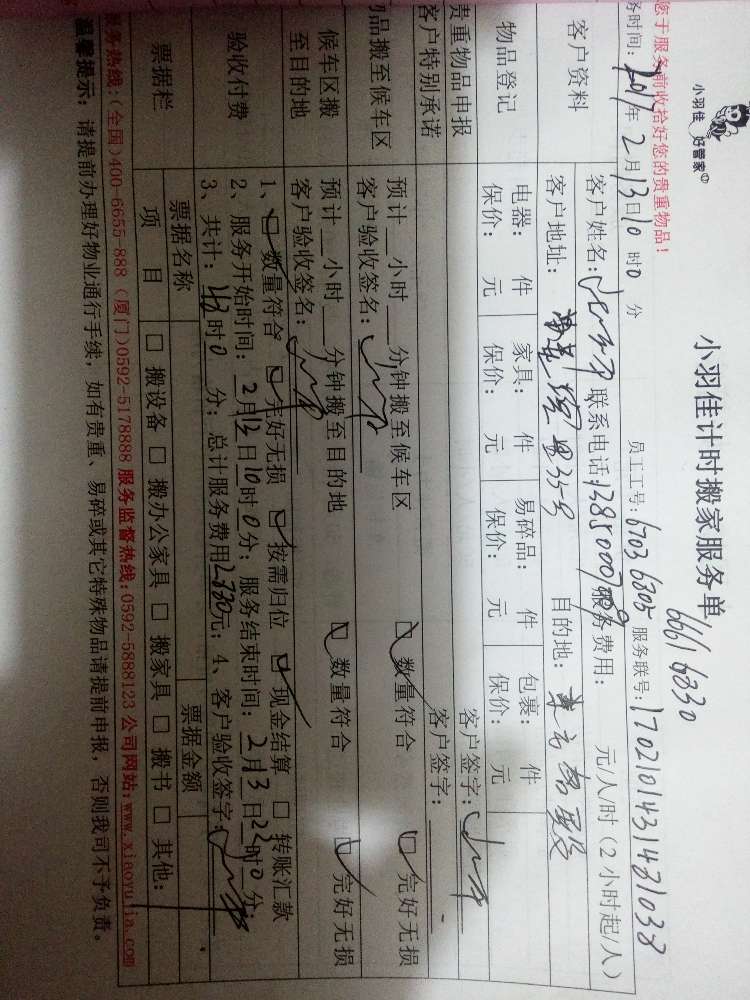 小羽佳 好管家
小羽佳计时搬家服务单
6661 6330
您于服务前收拾好您的贵重物品!
务时间: 2017年2月13日10时0分 员工工号: 6703 6805 服务联号: 1702101431431038
客户资料 客户姓名: 联系电话: 服务费用: 元/人/时(2小时起/人)
客户地址: 目的地:
物品登记 电器: 件 家具: 件 易碎品: 件 包裹: 件
保价: 元 保价: 元 保价: 元 保价: 元
贵重物品申报 客户签字:
客户特别承诺 客户签字:
物品搬至候车区 预计__小时__分钟搬至候车区 数量符合 完好无损
客户验收签名:
候车区搬至目的地 预计__小时__分钟搬至目的地 数量符合 完好无损
客户验收签名:
验收付费 1、数量符合 完好无损 按需归位 现金结算 转账汇款
2、服务开始时间: 2月13日10时0分; 服务结束时间: 2月13日22时0分;
3、共计: 时0分; 总计服务费用2880元; 4、客户验收签字:
票据栏 票据名称 票据金额
项目 □搬设备 □搬办公家具 □搬家具 □搬书 □其他:
服务热线:(全国)400-6655-888 (厦门)0592-5178888 服务监督热线:0592-5888123 公司网站:www.xiaoyujia.com
温馨提示: 请提前办理好物业通行手续, 如有贵重、易碎或其它特殊物品请提前申报, 否则我司不予负责。